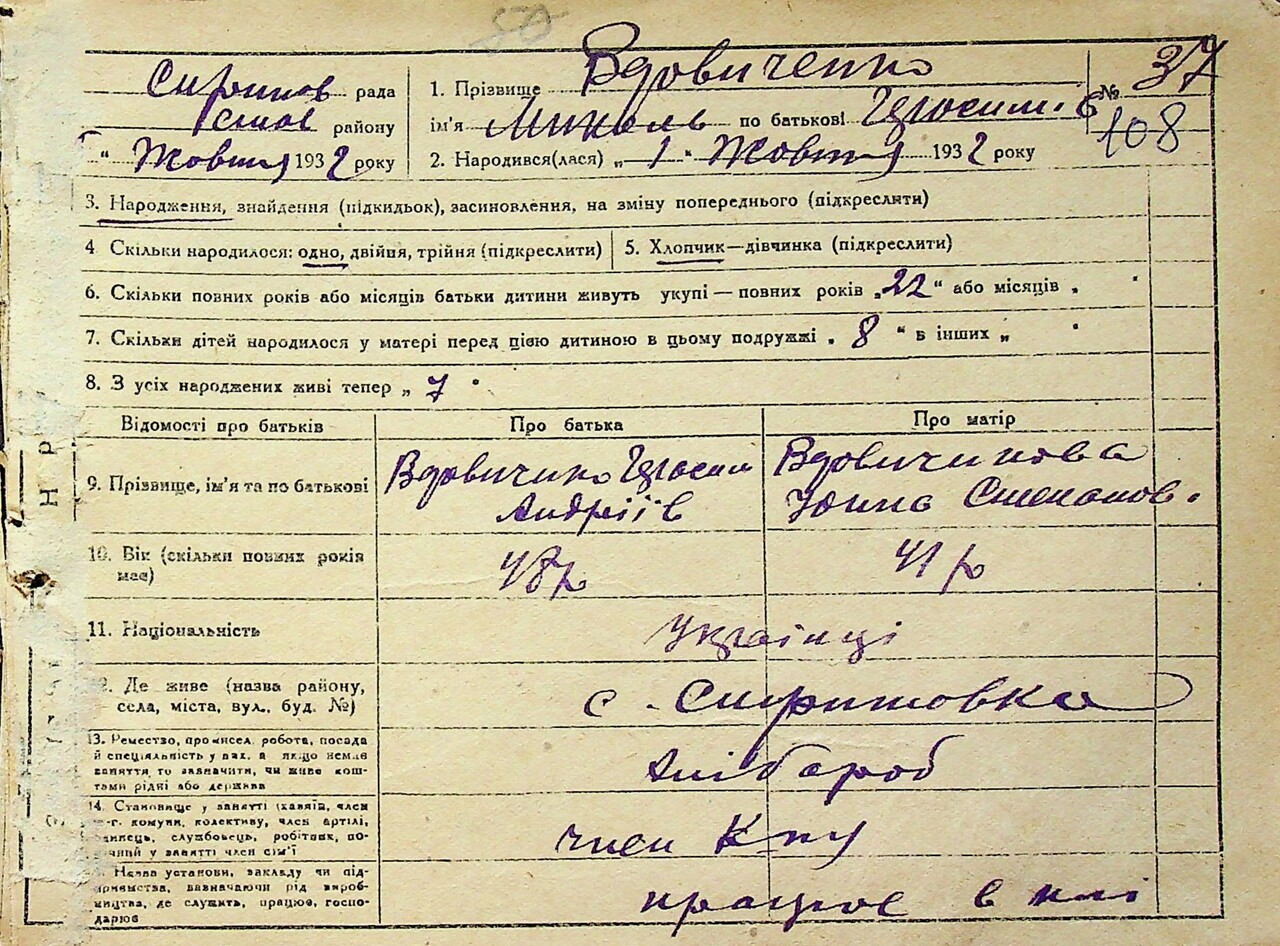 50
рада
району
" Жовтня 1932 року
1. Прізвище Вдовиченко
ім'я Миколь по батькові
2. Народився(лася) „ 1 " Жовтня 1932 року
№ 37
108
3. Народження, знайдення (підкидьок), засиновлення, на зміну попереднього (підкреслити)
4 Скільки народилося: одно, двійня, трійня (підкреслити)
5. Хлопчик—дівчинка (підкреслити)
6. Скільки повних років або місяців батьки дитини живуть укупі — повних років „22" або місяців „ "
7. Скільки дітей народилося у матері перед цією дитиною в цьому подружжі „ 8 " в інших „ "
8. З усіх народжених живі тепер „ 7 "
Відомості про батьків
Про батька
Про матір
9. Прізвище, ім'я та по батькові
Вдовиченко
Андріїв
Вдовиченкова
Степанов.
10. Вік (скільки повних років
має)
48 р
41 р
11. Національність
Українці
2. Де живе (назва району,
села, міста, вул., буд. №)
с.
13. Ремество, промисел, робота, посада
й спеціяльність у них, а якщо немає
заняття то зазначити, чи живе кош-
тами рідні або держави
Хлібороб
14. Становище у занятті (хазяїн, член
с.-г. комуни, колективу, член артілі,
службовець, робітник, по-
у занятті член сім'ї
член
Назва установи, закладу чи під-
приємства, визначаючи рід вироб-
ництва, де служить, працює, госпо-
дарює
працює в полі